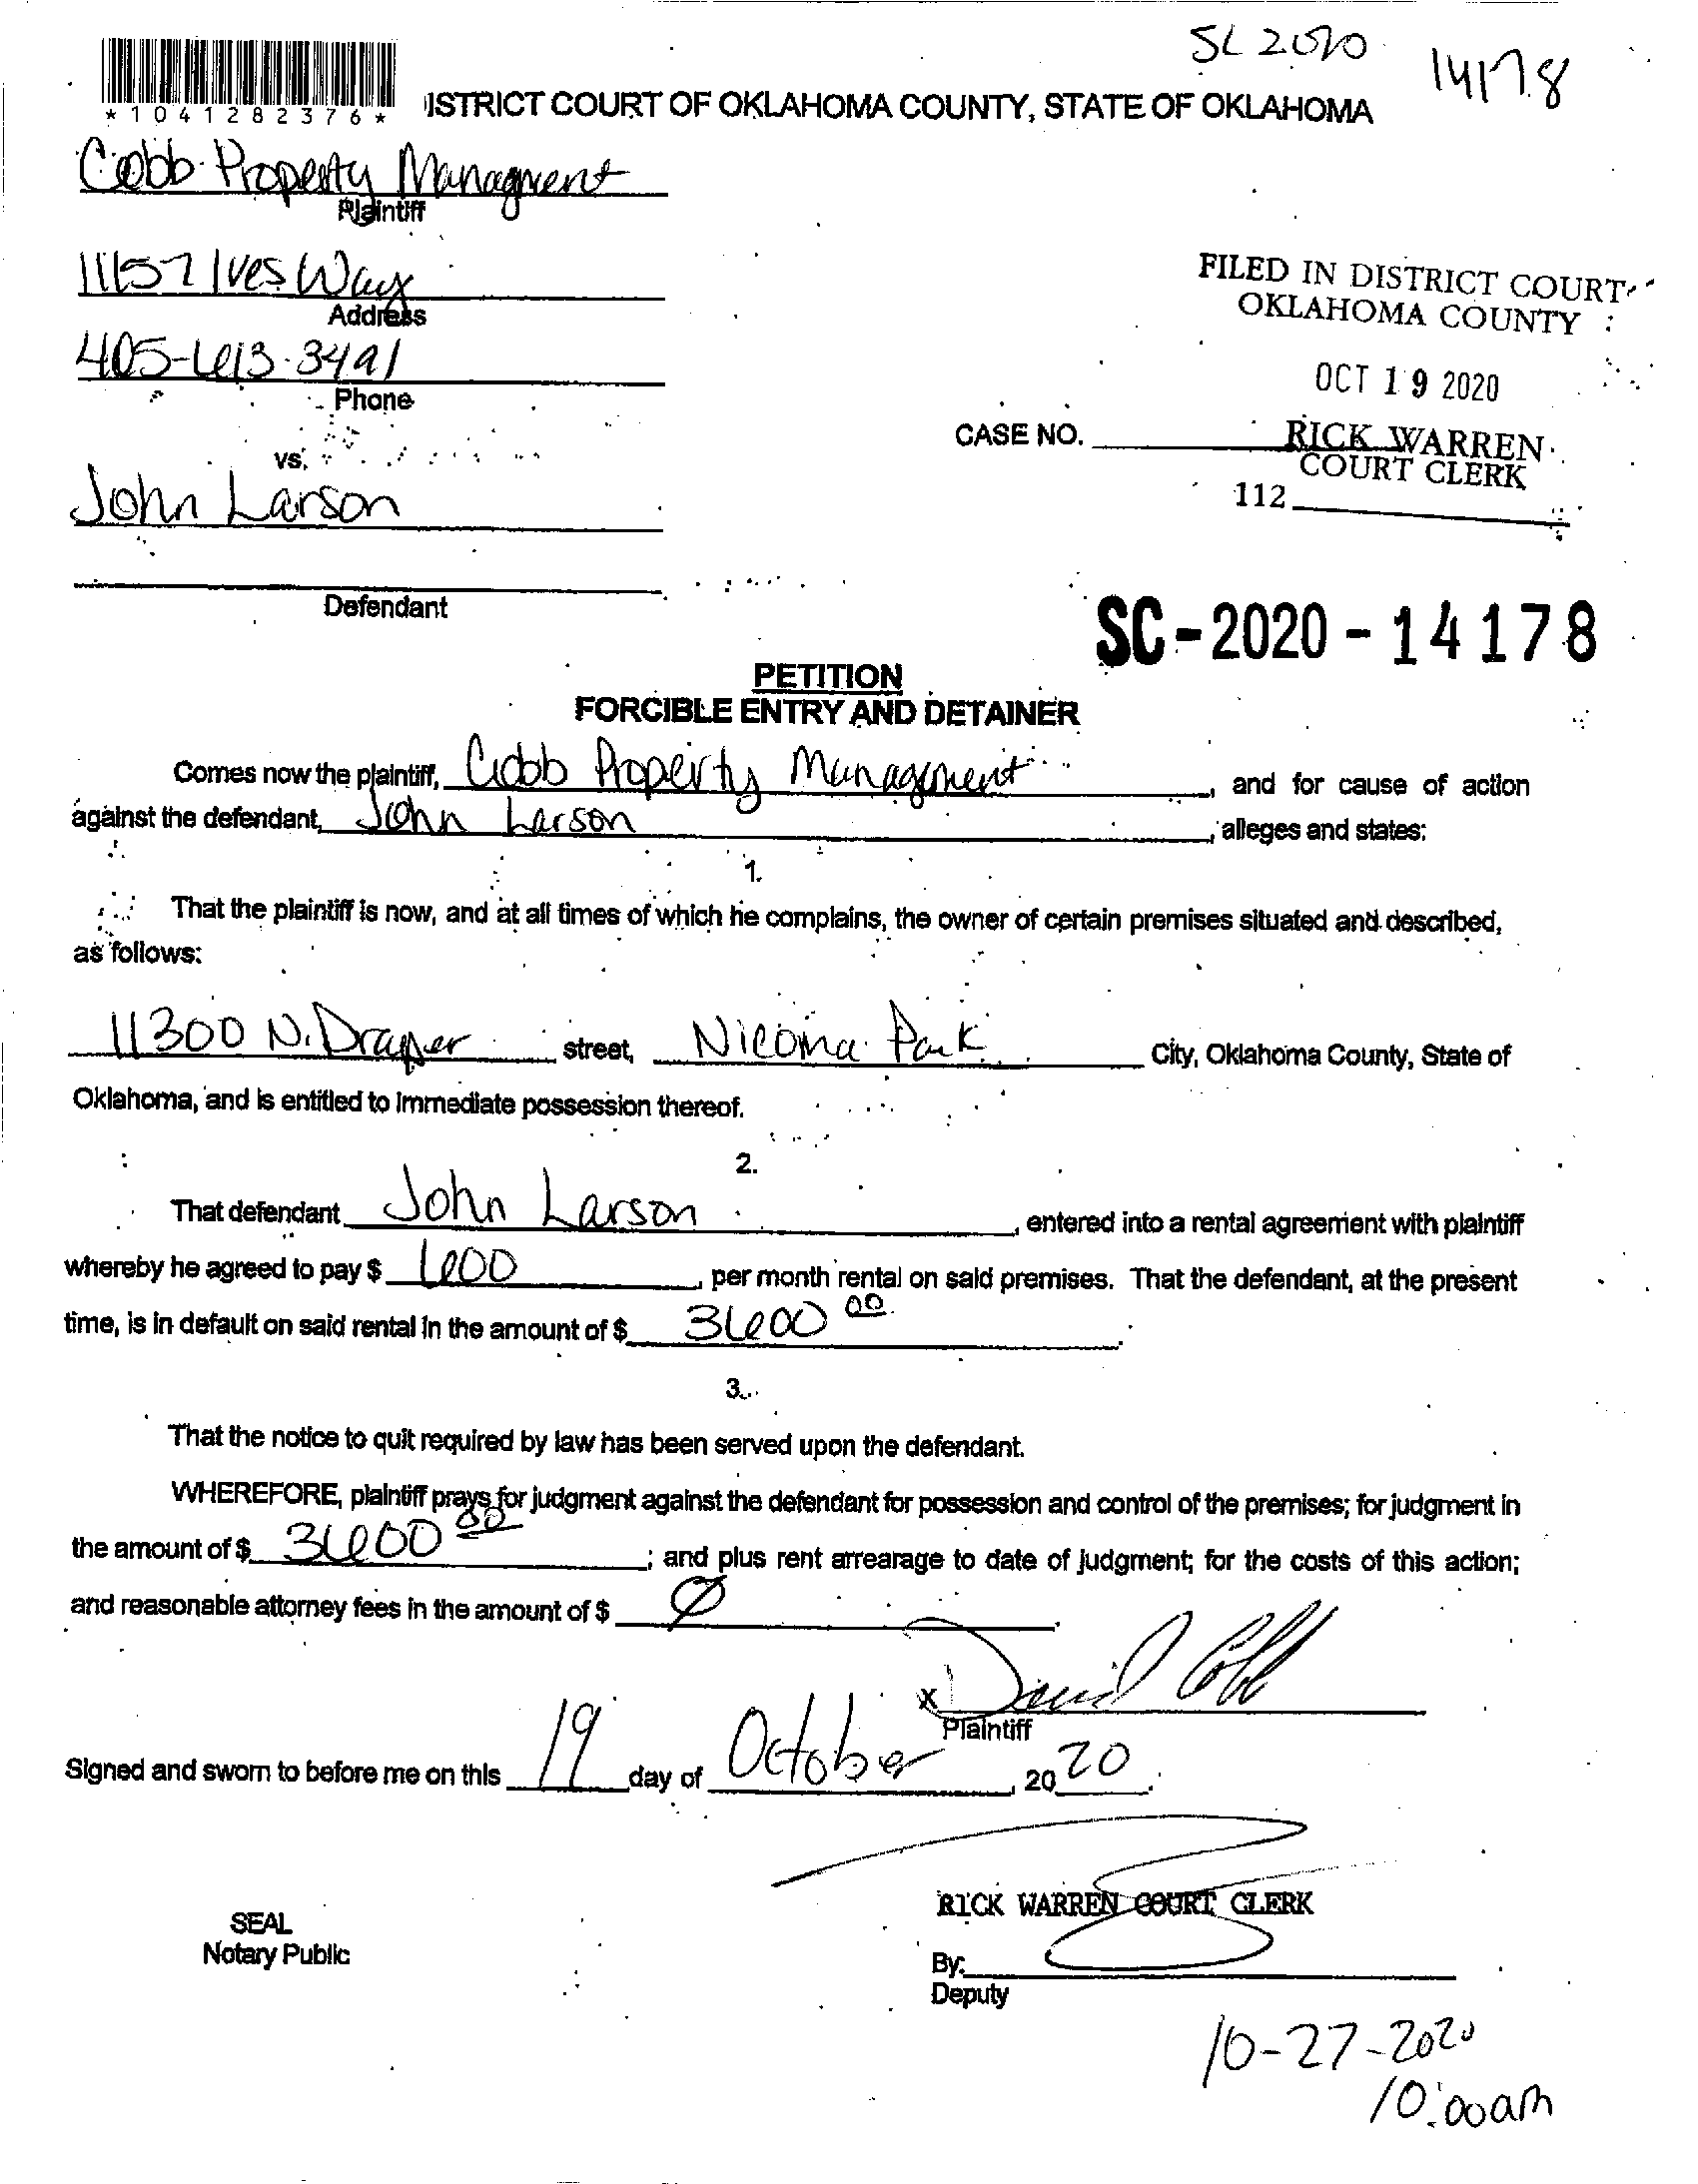 SC 2020
14178
*1041282376*
ISTRICT COURT OF OKLAHOMA COUNTY, STATE OF OKLAHOMA
Cobb Property Managment
Plaintiff
11157 Ives Way
Address
405-613-3491
Phone
FILED IN DISTRICT COURT
OKLAHOMA COUNTY
OCT 19 2020
RICK WARREN
COURT CLERK
112
CASE NO.
vs.
John Larson
Defendant
SC-2020-14178
PETITION
FORCIBLE ENTRY AND DETAINER
Comes now the plaintiff, Cobb Property Management, and for cause of action
against the defendant, John Larson, alleges and states:
1.
That the plaintiff is now, and at all times of which he complains, the owner of certain premises situated and described,
as follows:
11300 N. Draper street, Nicoma Park City, Oklahoma County, State of
Oklahoma, and is entitled to immediate possession thereof.
2.
That defendant John Larson, entered into a rental agreement with plaintiff
whereby he agreed to pay $ 600, per month rental on said premises. That the defendant, at the present
time, is in default on said rental in the amount of $ 3600 00.
3.
That the notice to quit required by law has been served upon the defendant.
WHEREFORE, plaintiff prays for judgment against the defendant for possession and control of the premises; for judgment in
the amount of $ 3600 00; and plus rent arrearage to date of judgment; for the costs of this action;
and reasonable attorney fees in the amount of $ Ø.
x David Cobb
Plaintiff
Signed and sworn to before me on this 19 day of October, 2020.
RICK WARREN COURT CLERK
SEAL
Notary Public
By:
Deputy
10-27-2020
10:00am